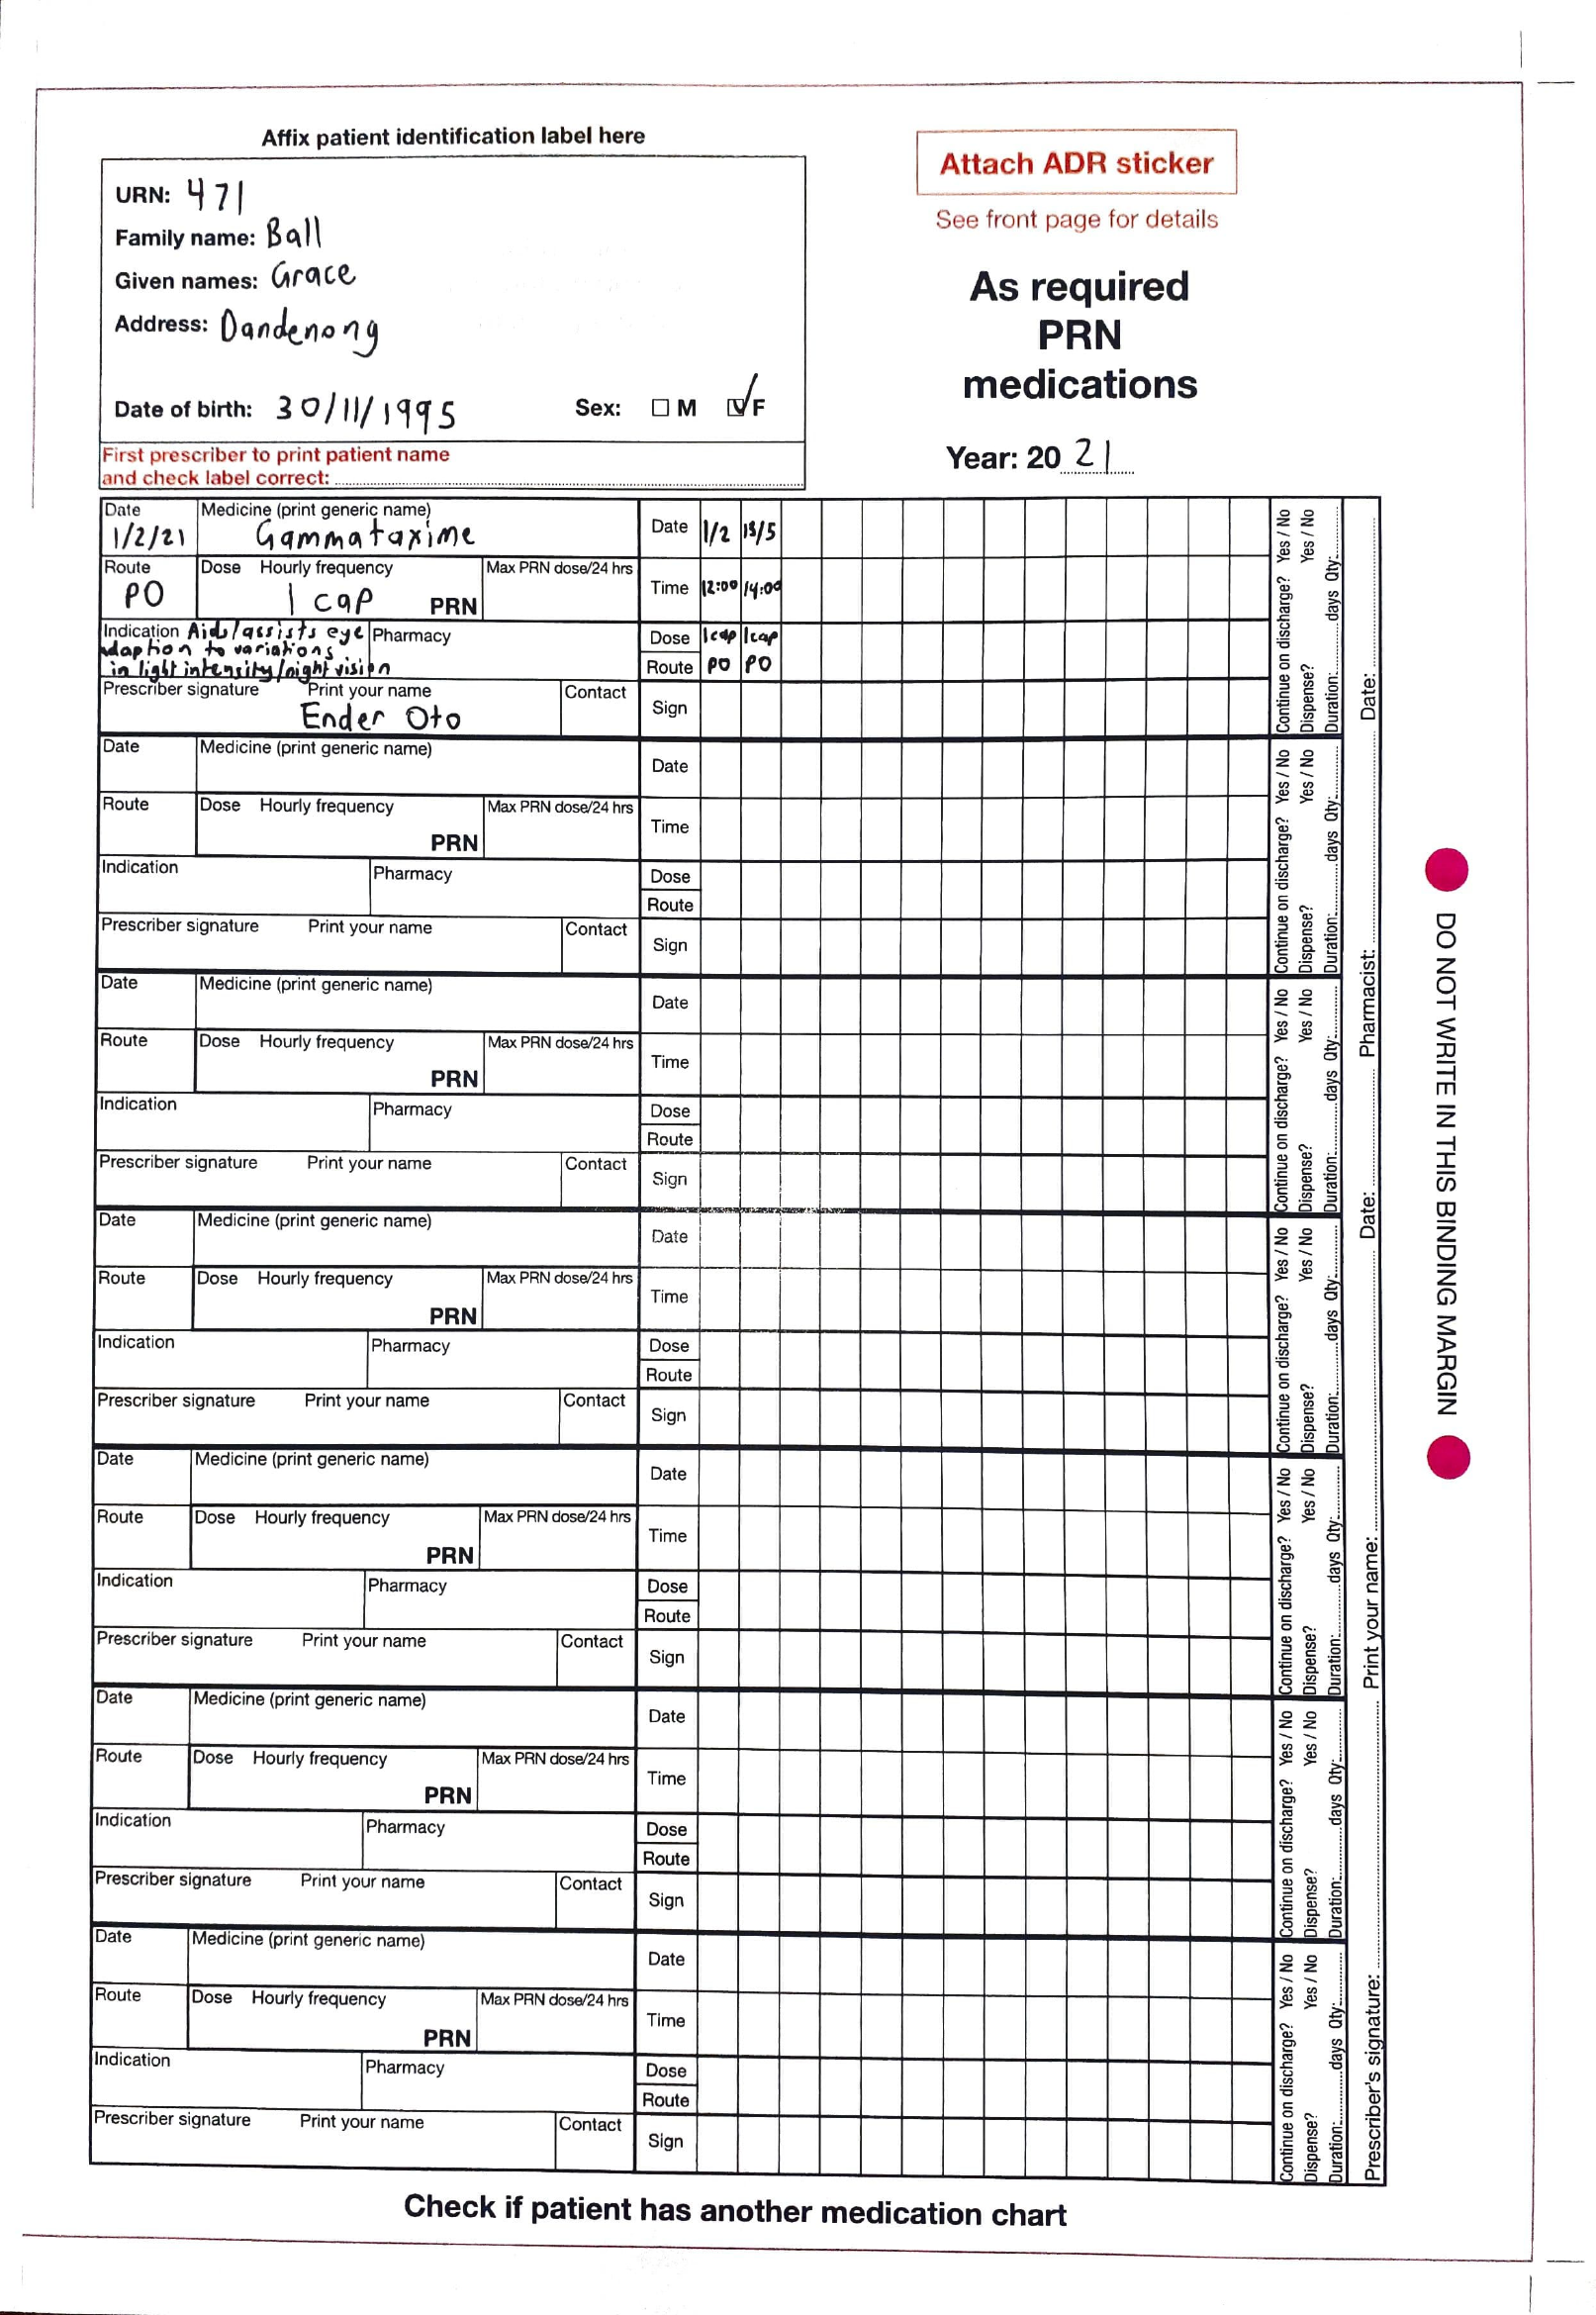 Affix patient identification label here
URN: 471
Family name: Ball
Given names: Grace
Address: Dandenong
Date of birth: 30/11/1995 Sex: M F
First prescriber to print patient name
and check label correct:
Attach ADR sticker
See front page for details
As required
PRN
medications
Year: 20 21
Date Medicine (print generic name) Date 1/2 15/5
1/2/21 Gammataxime
Route Dose Hourly frequency Max PRN dose/24 hrs Time 12:00 14:00
PO 1 cap PRN
Indication Aids/assists eye Pharmacy Dose 1cap 1cap
adaption to variations
in light intensity/night vision Route PO PO
Prescriber signature Print your name Contact Sign
Ender Oto
Continue on discharge? Yes / No
Dispense? Yes / No
Duration: days Qty:
Date Medicine (print generic name) Date
Route Dose Hourly frequency Max PRN dose/24 hrs Time
PRN
Indication Pharmacy Dose
Route
Prescriber signature Print your name Contact Sign
Continue on discharge? Yes / No
Dispense? Yes / No
Duration: days Qty:
Date Medicine (print generic name) Date
Route Dose Hourly frequency Max PRN dose/24 hrs Time
PRN
Indication Pharmacy Dose
Route
Prescriber signature Print your name Contact Sign
Continue on discharge? Yes / No
Dispense? Yes / No
Duration: days Qty:
Date Medicine (print generic name) Date
Route Dose Hourly frequency Max PRN dose/24 hrs Time
PRN
Indication Pharmacy Dose
Route
Prescriber signature Print your name Contact Sign
Continue on discharge? Yes / No
Dispense? Yes / No
Duration: days Qty:
Date Medicine (print generic name) Date
Route Dose Hourly frequency Max PRN dose/24 hrs Time
PRN
Indication Pharmacy Dose
Route
Prescriber signature Print your name Contact Sign
Continue on discharge? Yes / No
Dispense? Yes / No
Duration: days Qty:
Date Medicine (print generic name) Date
Route Dose Hourly frequency Max PRN dose/24 hrs Time
PRN
Indication Pharmacy Dose
Route
Prescriber signature Print your name Contact Sign
Continue on discharge? Yes / No
Dispense? Yes / No
Duration: days Qty:
Date Medicine (print generic name) Date
Route Dose Hourly frequency Max PRN dose/24 hrs Time
PRN
Indication Pharmacy Dose
Route
Prescriber signature Print your name Contact Sign
Continue on discharge? Yes / No
Dispense? Yes / No
Duration: days Qty:
Prescriber's signature: Print your name: Date: Pharmacist: Date:
DO NOT WRITE IN THIS BINDING MARGIN
Check if patient has another medication chart